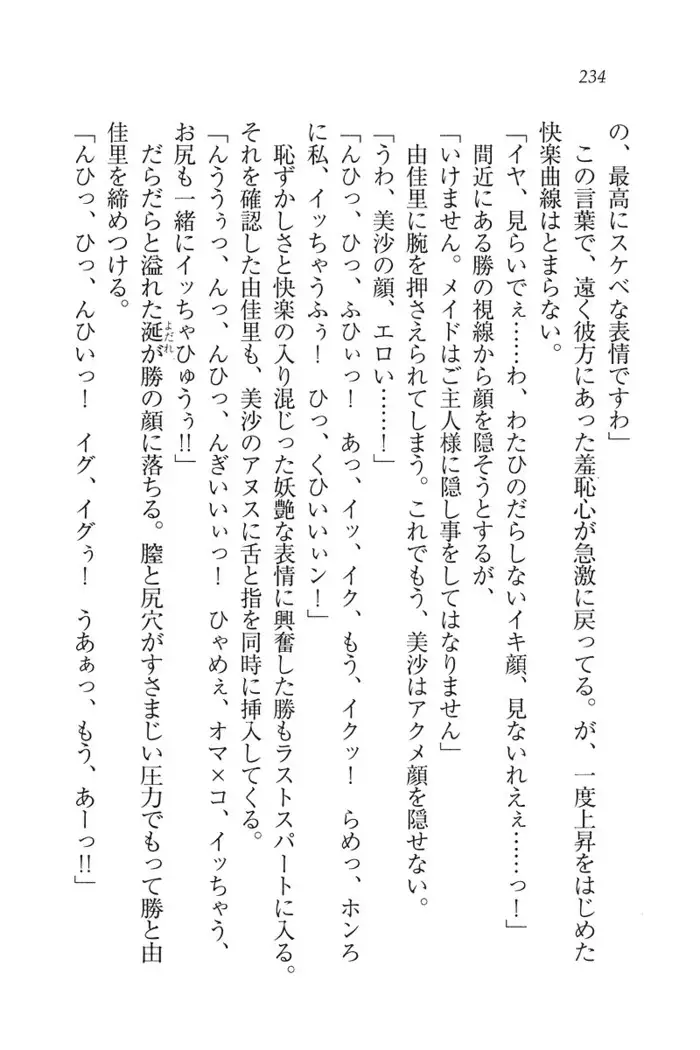 234
の、最高にスケベな表情ですわ」
この言葉で、遠く彼方にあった羞恥心が急激に戻ってる。が、一度上昇をはじめた
快楽曲線はとまらない。
「イヤ、見らいでぇ……わ、わたひのだらしないイキ顔、見ないれえぇ……っ！」
間近にある勝の視線から顔を隠そうとするが、
「いけません。メイドはご主人様に隠し事をしてはなりません」
由佳里に腕を押さえられてしまう。これでもう、美沙はアクメ顔を隠せない。
「うわ、美沙の顔、エロい……！」
「んひっ、ひっ、ふひぃっ！　あっ、イッ、イク、もう、イクッ！　らめっ、ホンろ
に私、イッちゃうふぅ！　ひっ、くひいいぃン！」
恥ずかしさと快楽の入り混じった妖艶な表情に興奮した勝もラストスパートに入る。
それを確認した由佳里も、美沙のアヌスに舌と指を同時に挿入してくる。
「んううぅっ、んっ、んひっ、んぎいいぃっ！　ひゃめぇ、オマ×コ、イッちゃう、
お尻も一緒にイッちゃひゅうぅ!!」
だらだらと溢れた涎が勝の顔に落ちる。膣と尻穴がすさまじい圧力でもって勝と由
よだれ
佳里を締めつける。
「んひっ、ひっ、んひいっ！　イグ、イグぅ！　うあぁっ、もう、あーっ!!」